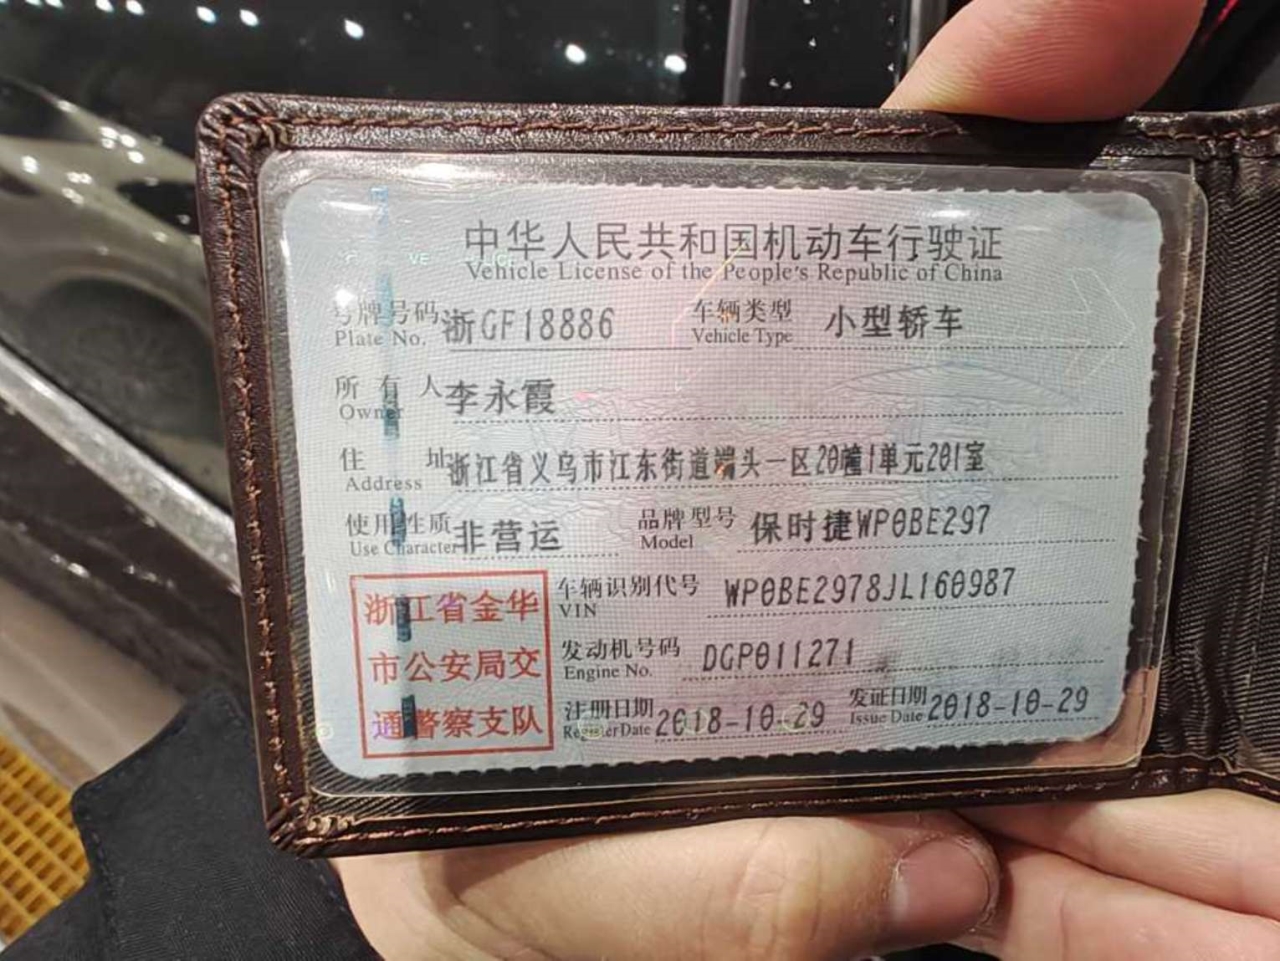 中华人民共和国机动车行驶证
Vehicle License of the People's Republic of China
号牌号码 浙GF18886 车辆类型 小型轿车
Plate No. Vehicle Type
所有人 李永霞
Owner
住址 浙江省义乌市江东街道端头一区20幢1单元201室
Address
使用性质 非营运 品牌型号 保时捷WP0BE297
Use Character Model
浙江省金华
市公安局交
通警察支队
车辆识别代号 WP0BE2978JL160987
VIN
发动机号码 DGP011271
Engine No.
注册日期 2018-10-29 发证日期 2018-10-29
Register Date Issue Date